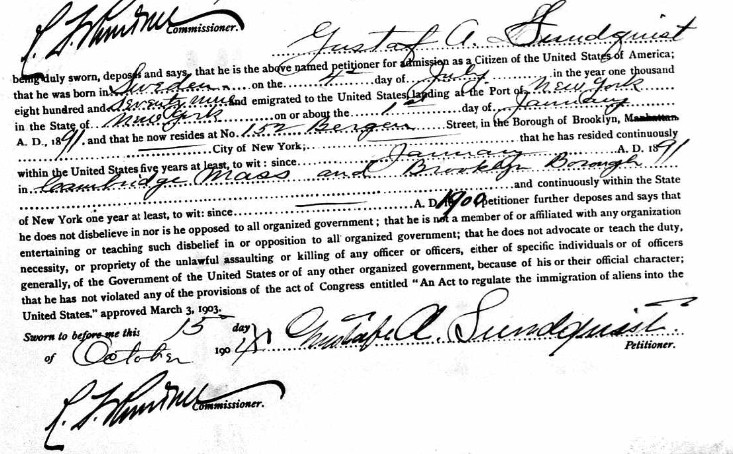 Commissioner.
Gustaf A. Sundquist
being duly sworn, deposes and says, that he is the above named petitioner for admission as a Citizen of the United States of America;
that he was born in Sweden on the 4th day of July in the year one thousand
eight hundred and seventy nine and emigrated to the United States, landing at the Port of New York
in the State of New York on or about the 1st day of January
A. D., 1891, and that he now resides at No. 152 Bergen Street, in the Borough of Brooklyn, Manhattan
City of New York; that he has resided continuously
within the United States five years at least, to wit: since January A. D. 1891
in Cambridge Mass and Brooklyn Borough
and continuously within the State
of New York one year at least, to wit: since A. D. 1900 Petitioner further deposes and says that
he does not disbelieve in nor is he opposed to all organized government; that he is not a member of or affiliated with any organization
entertaining or teaching such disbelief in or opposition to all organized government; that he does not advocate or teach the duty,
necessity, or propriety of the unlawful assaulting or killing of any officer or officers, either of specific individuals or of officers
generally, of the Government of the United States or of any other organized government, because of his or their official character;
that he has not violated any of the provisions of the act of Congress entitled "An Act to regulate the immigration of aliens into the
United States." approved March 3, 1903.
Sworn to before me this 15 day
of October 1904 Gustaf A. Sundquist
Petitioner.
Commissioner.